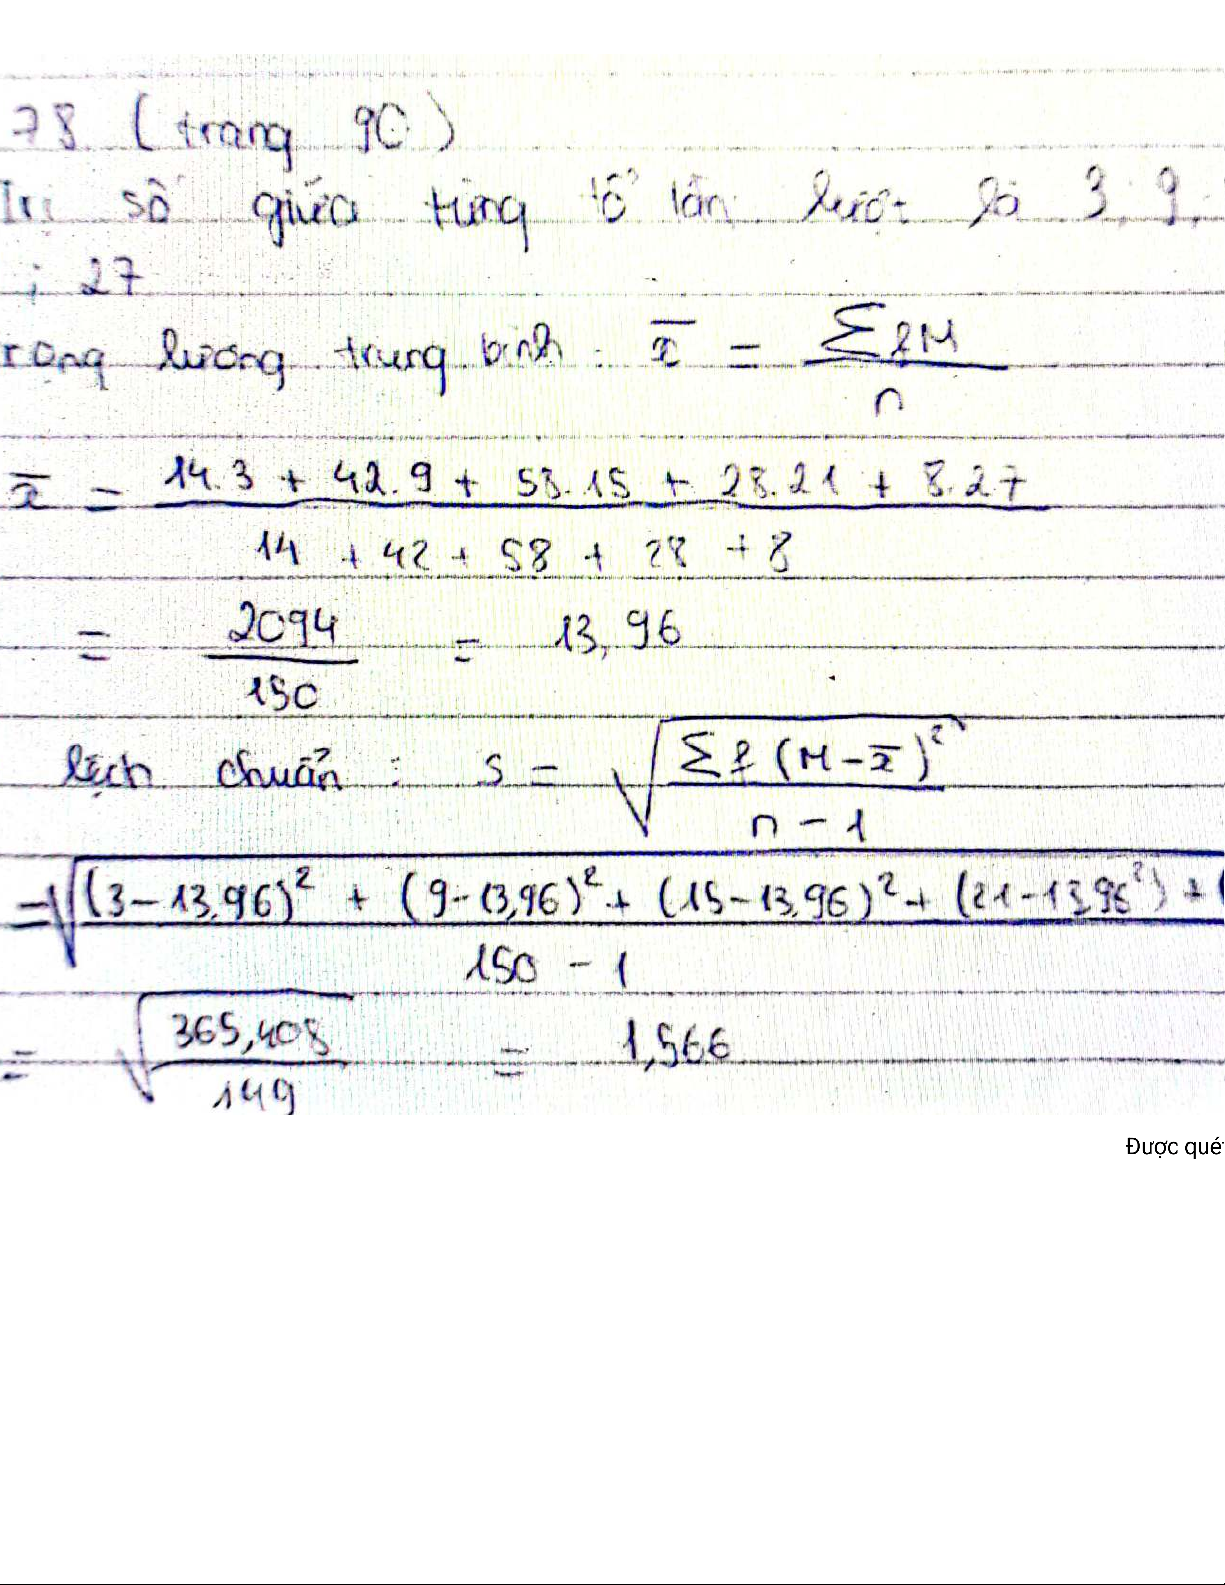 78 (trang 90)
số giữa từng tổ lần lượt là 3; 9;
; 27
rọng lượng trung bình : x̄ = ΣfM / n
x̄ = (14.3 + 42.9 + 58.15 + 28.21 + 8.27) / (14 + 42 + 58 + 28 + 8)
= 2094 / 150 = 13,96
lệch chuẩn : s = √(Σf(M - x̄)² / (n - 1))
= √((3 - 13,96)² + (9 - 13,96)² + (15 - 13,96)² + (21 - 13,96²) + ( / (150 - 1)
= √(365,408 / 149) = 1,566
Được qué